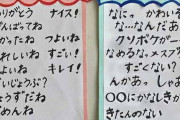 りがとう ナイス!
んばってね
かったね つよいね
れしいね すごい!
よいね キレイ!
いじょうぶ?
ょうずだね
めんね
なにっ かわいそ
な…なんだあ
クソボケがー
なめるなっメスブタ
すごくない?
んかあっ しゃあ
〇〇にかなしき
きたんのない